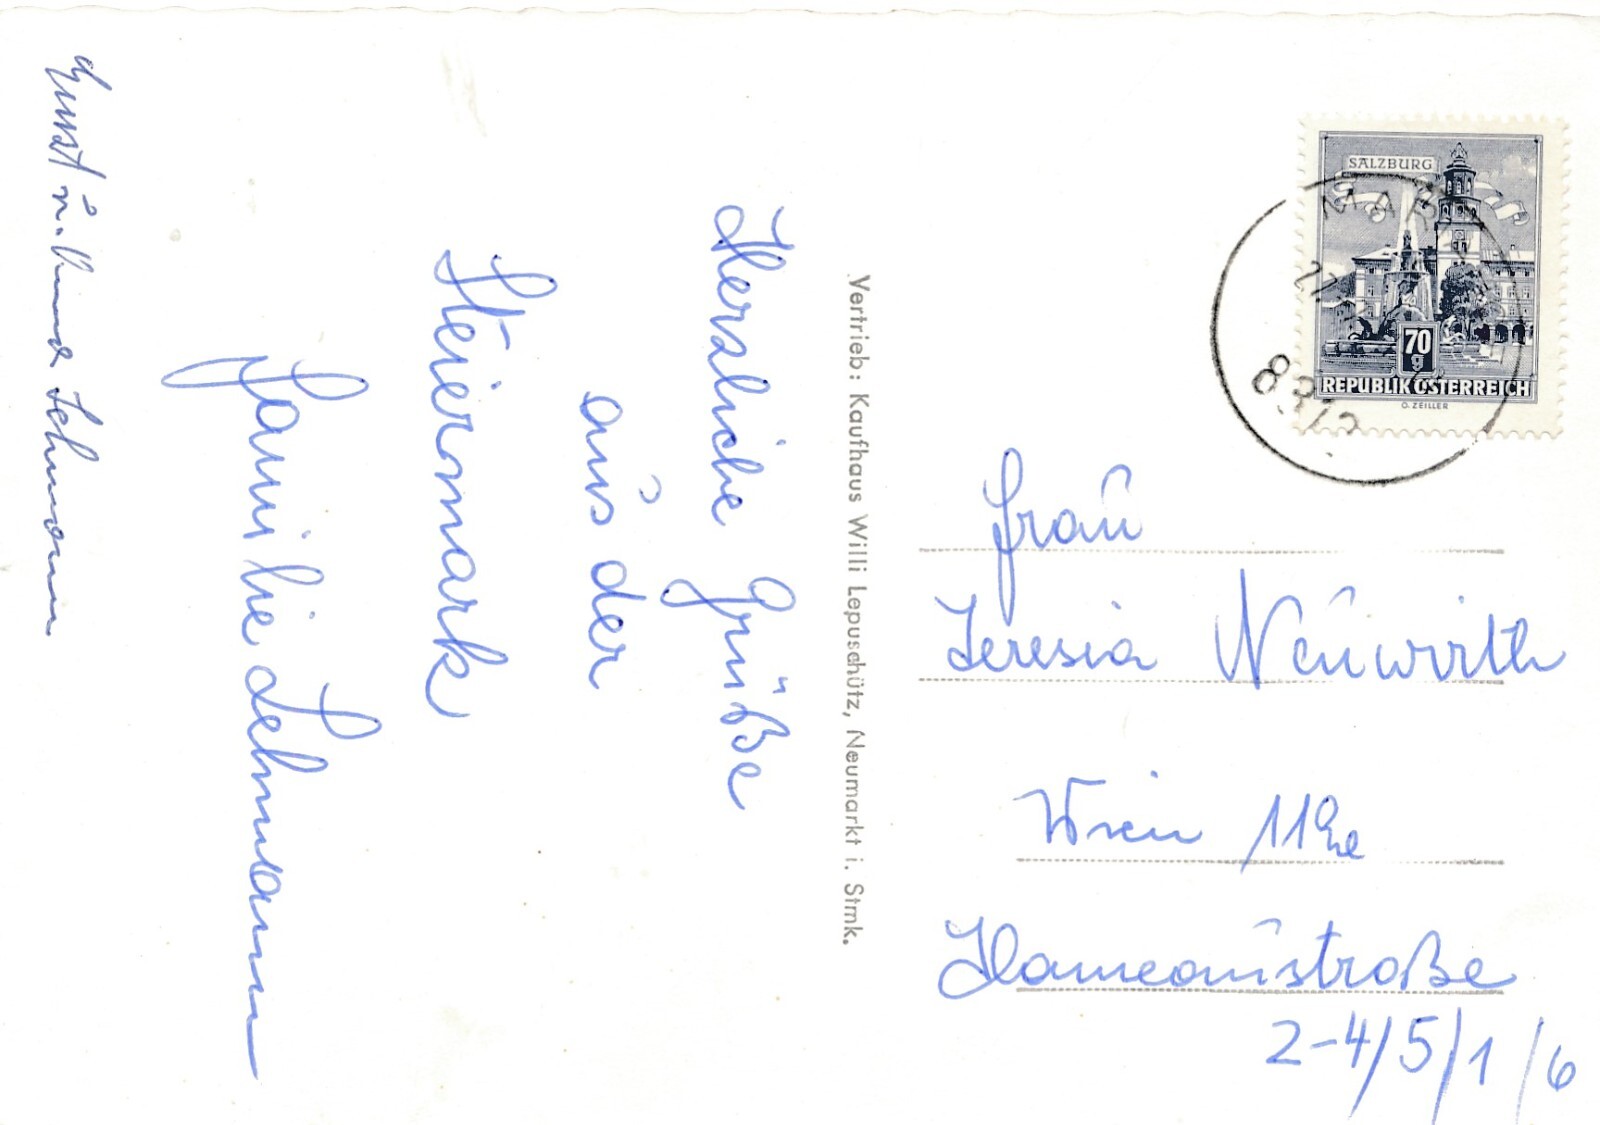 Herzliche Grüße
aus der
Steiermark
Familie Lehmann
Ernst u. Lehmann
Vertrieb: Kaufhaus Willi Lepuschütz, Neumarkt i. Stmk.
SALZBURG
70
g
REPUBLIK ÖSTERREICH
O. ZEILLER
Frau
Teresia Neuwirth
Wien
2-4/5/1/6